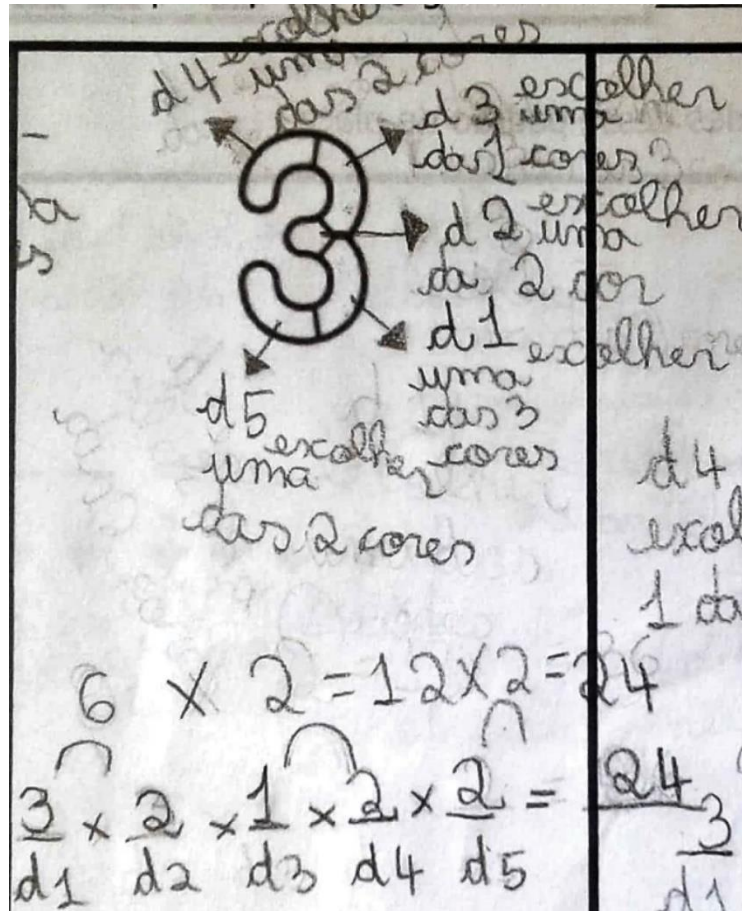 d4 escolher
uma
das 2 cores
d3 escolher
uma
das 1 cores
d2 escolher
uma
das 2 cor
d1 escolher
uma
das 3
cores
d5 escolher
uma
das 2 cores
d4
1 da
6 × 2 = 12 × 2 = 24
3/d1 × 2/d2 × 1/d3 × 2/d4 × 2/d5 = 24
3
d1